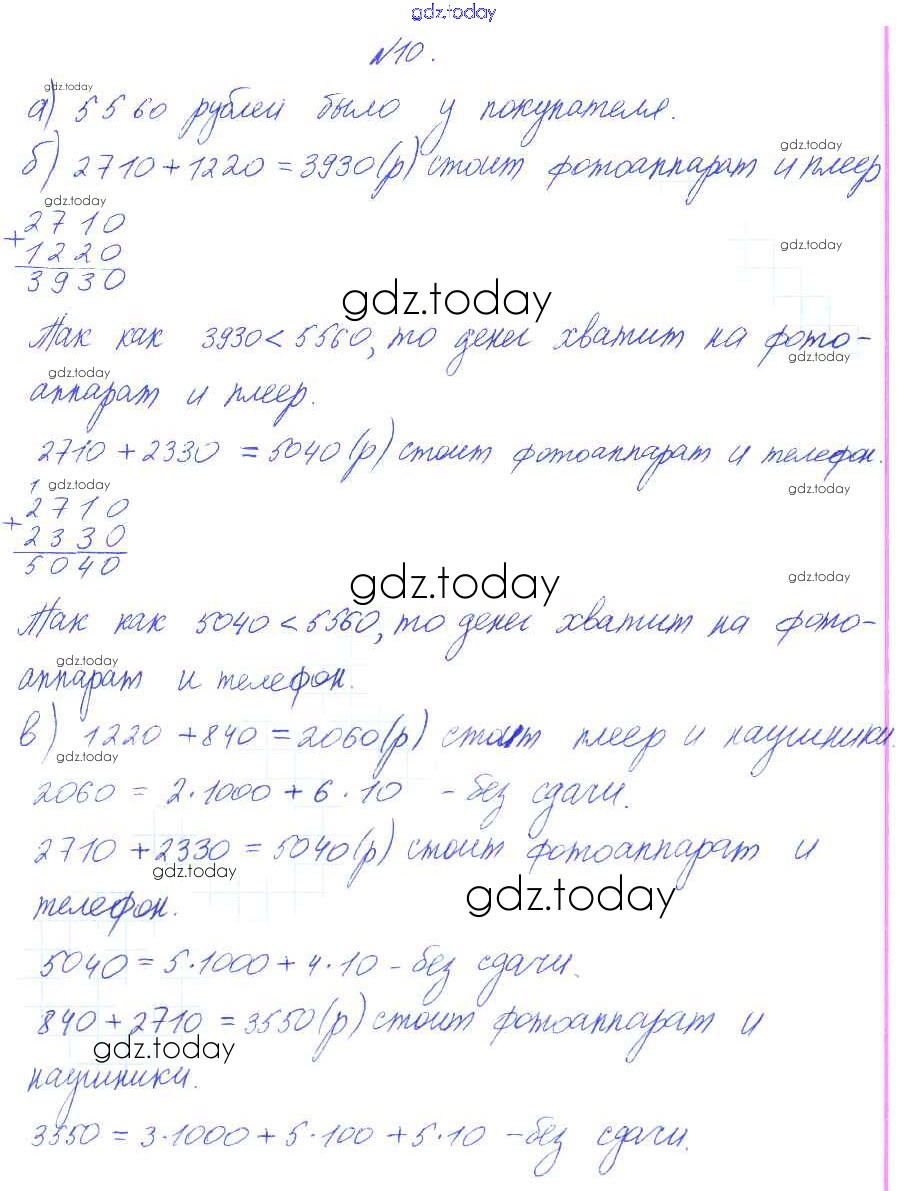 gdz.today
№10.
gdz.today
а) 5560 рублей было у покупателя.
gdz.today
б) 2710+1220=3930(р) стоит фотоаппарат и плеер
gdz.today
2710
+
1220
3930
gdz.today
gdz.today
Так как 3930<5560, то денег хватит на фото-
gdz.today
gdz.today
аппарат и плеер.
2710+2330=5040(р) стоит фотоаппарат и телефон.
1
gdz.today
gdz.today
2710
+
2330
5040
gdz.today
gdz.today
Так как 5040<5560, то денег хватит на фото-
gdz.today
аппарат и телефон.
в) 1220+840=2060(р) стоит плеер и наушники.
gdz.today
2060=2·1000+6·10 - без сдачи.
2710+2330=5040(р) стоит фотоаппарат и
gdz.today
gdz.today
телефон.
5040=5·1000+4·10 - без сдачи.
840+2710=3550(р) стоит фотоаппарат и
gdz.today
наушники.
3550=3·1000+5·100+5·10 - без сдачи.